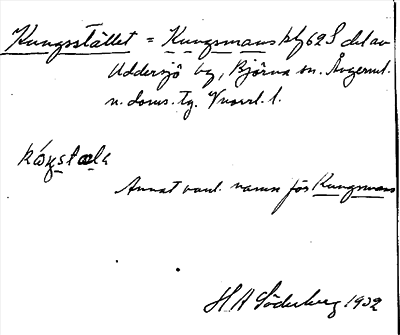 Kungsstället = Kungsmans kl/62 S del av
Uddersjö by, Björna sn. Ångerml.
n. doms. Tg.
kóŋstælɛ
Annat vanl. namn för Kungsmans
H A Söderberg 1932